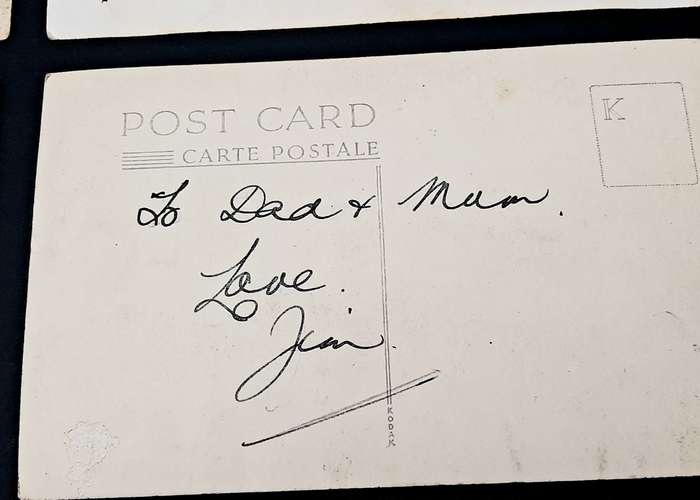 POST CARD
CARTE POSTALE
K
To Dad & Mum.
Love.
Jim.
KODAK